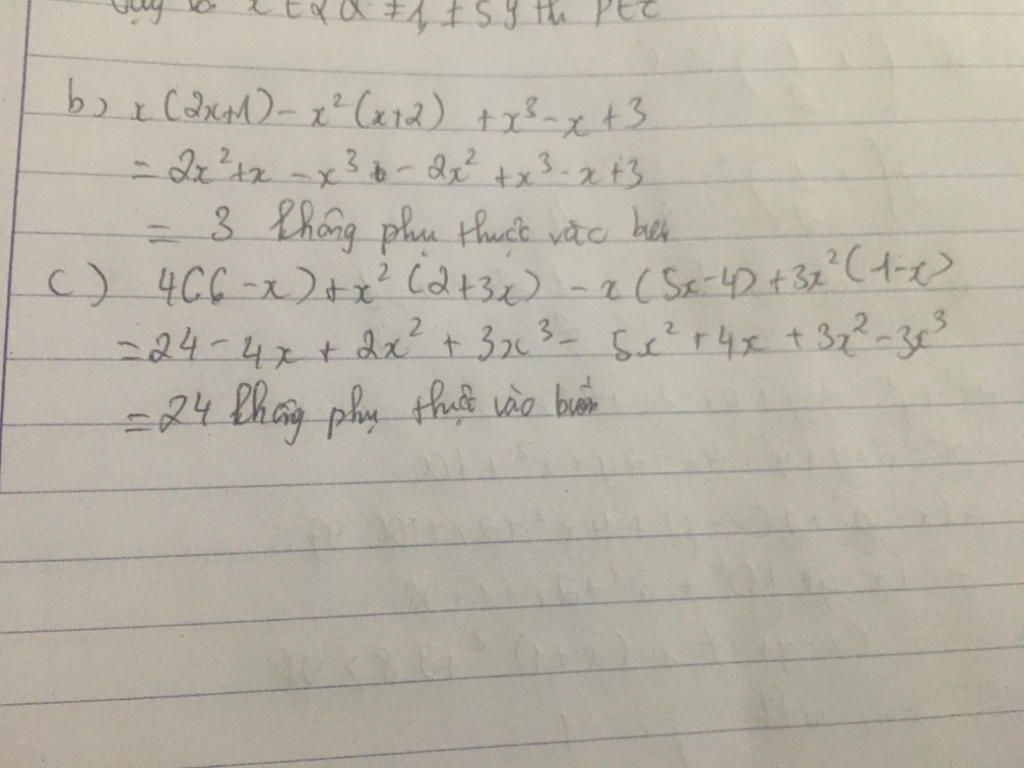 b) x(2x+1) - x²(x+2) + x³ - x + 3
= 2x² + x - x³ - 2x² + x³ - x + 3
= 3 không phụ thuộc vào
c) 4(6 - x) + x²(2+3x) - x(5x-4) + 3x²(1-x)
= 24 - 4x + 2x² + 3x³ - 5x² + 4x + 3x² - 3x³
= 24 không phụ thuộc vào biến